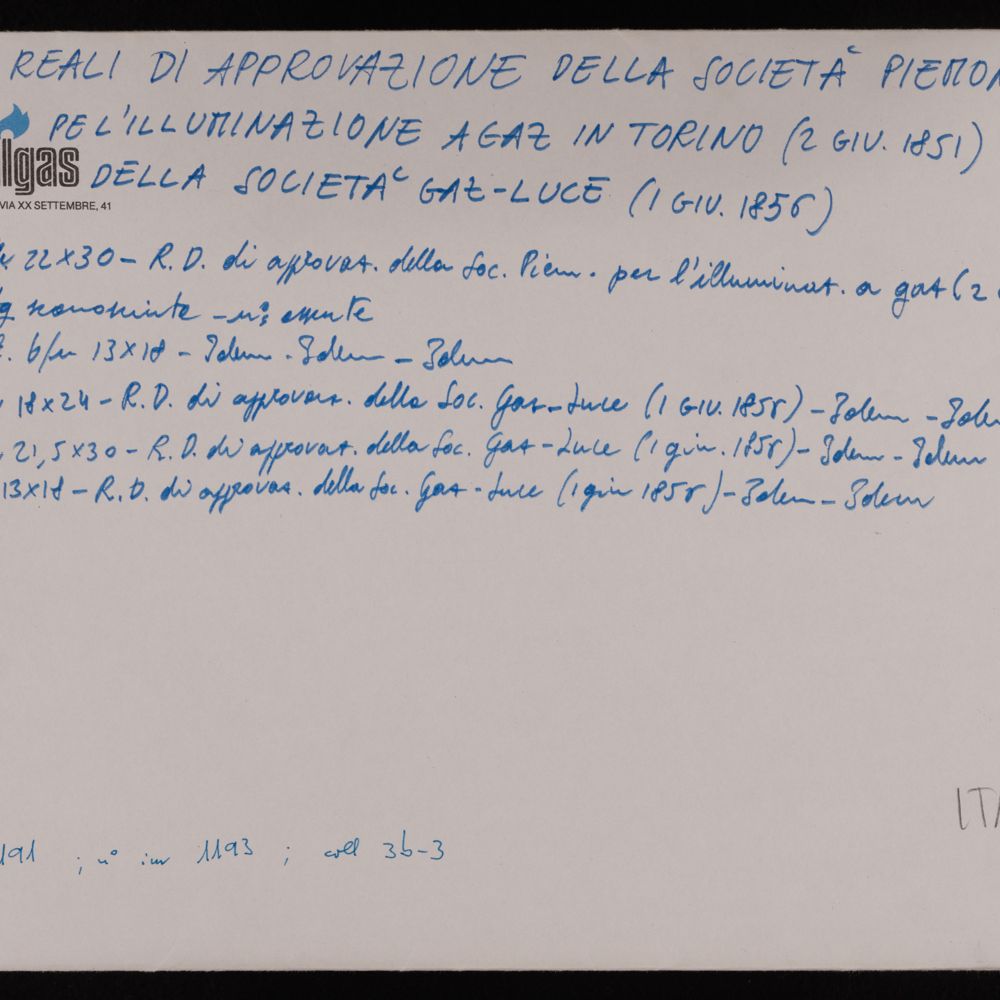 REALI DI APPROVAZIONE DELLA SOCIETÀ PIEMON
PEL'ILLUMINAZIONE A GAZ IN TORINO (2 GIU. 1851)
lgas
DELLA SOCIETÀ GAZ-LUCE (1 GIU. 1856)
VIA XX SETTEMBRE, 41
22x30 - R.D. di approvaz. della Soc. Piem. per l'illuminaz. a gaz (2
b/n 13x18 - Idem - Idem - Idem
18x24 - R.D. di approvaz. della Soc. Gaz-Luce (1 GIU. 1856) - Idem - Idem
21,5x30 - R.D. di approvaz. della Soc. Gaz-Luce (1 giu. 1856) - Idem - Idem
13x18 - R.D. di approvaz. della Soc. Gaz-Luce (1 giu 1856) - Idem - Idem
ITA
191 ; n° inv 1193 ; coll 3b-3